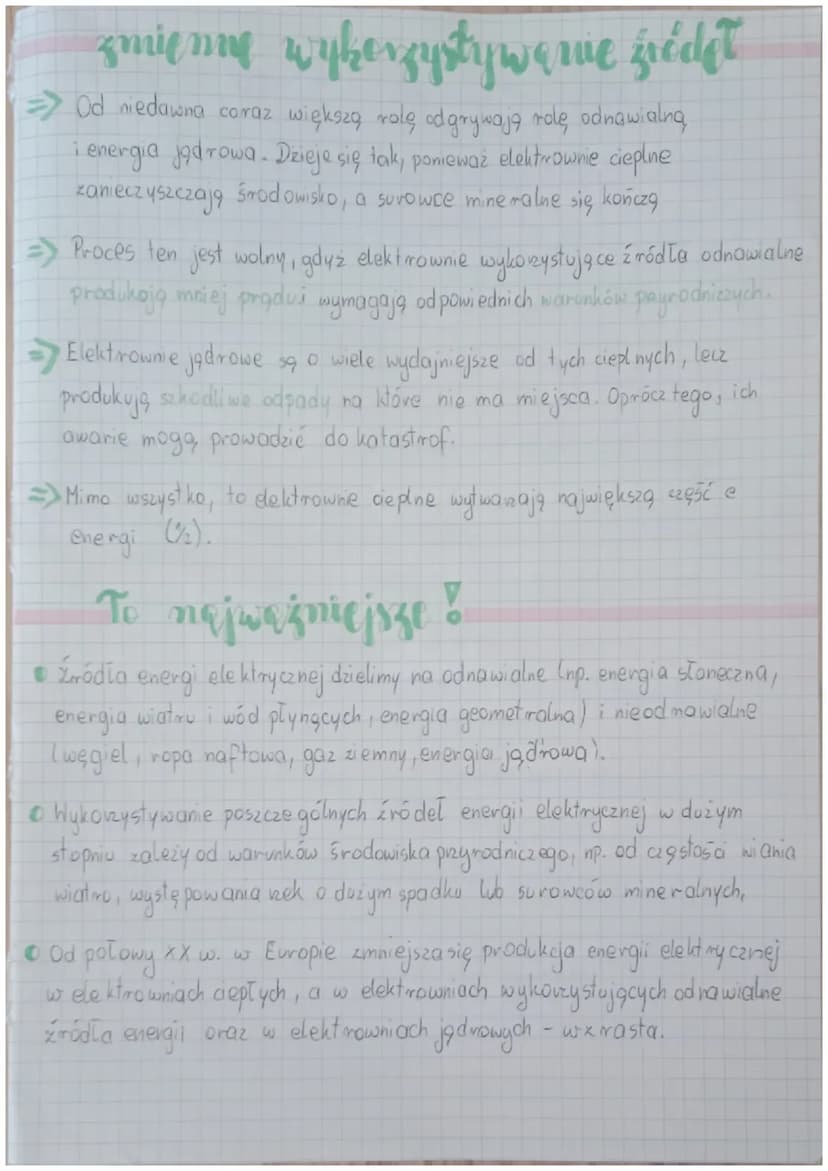 zmienne wykorzystywanie źródeł
=> Od niedawna coraz większą rolę odgrywają rolę odnawialną
i energia jądrowa. Dzieje się tak, ponieważ elektrownie cieplne
zanieczyszczają środowisko, a surowce mineralne się kończą
=> Proces ten jest wolny, gdyż elektrownie wykorzystujące źródła odnawialne
produkują mniej prądu i wymagają odpowiednich warunków payrodniczych.
=> Elektrownie jądrowe są o wiele wydajniejsze od tych cieplnych, lecz
produkują szkodliwe odpady na które nie ma miejsca. Oprócz tego, ich
awarie mogą prowadzić do katastrof.
=> Mimo wszystko, to elektrowne cieplne wytwarzają największą część e
energi (1/2).
To najważniejsze!
Źródła energi elektrycznej dzielimy na odnawialne (np. energia słoneczna,
energia wiatru i wód płynących, energia geometralna) i nieodnawialne
(węgiel, ropa naftowa, gaz ziemny, energia jądrowa).
Wykorzystywanie poszczególnych źródeł energii elektrycznej w dużym
stopniu zależy od warunków środowiska przyrodniczego, np. od częstości wiania
wiatru, występowania rzek o dużym spadku lub surowców mineralnych,
Od połowy XX w. w Europie zmniejsza się produkcja energii elektrycznej
w elektrowniach ciepłych, a w elektrowniach wykorzystujących odnawialne
źródła energii oraz w elektrowniach jądrowych - wzrasta.